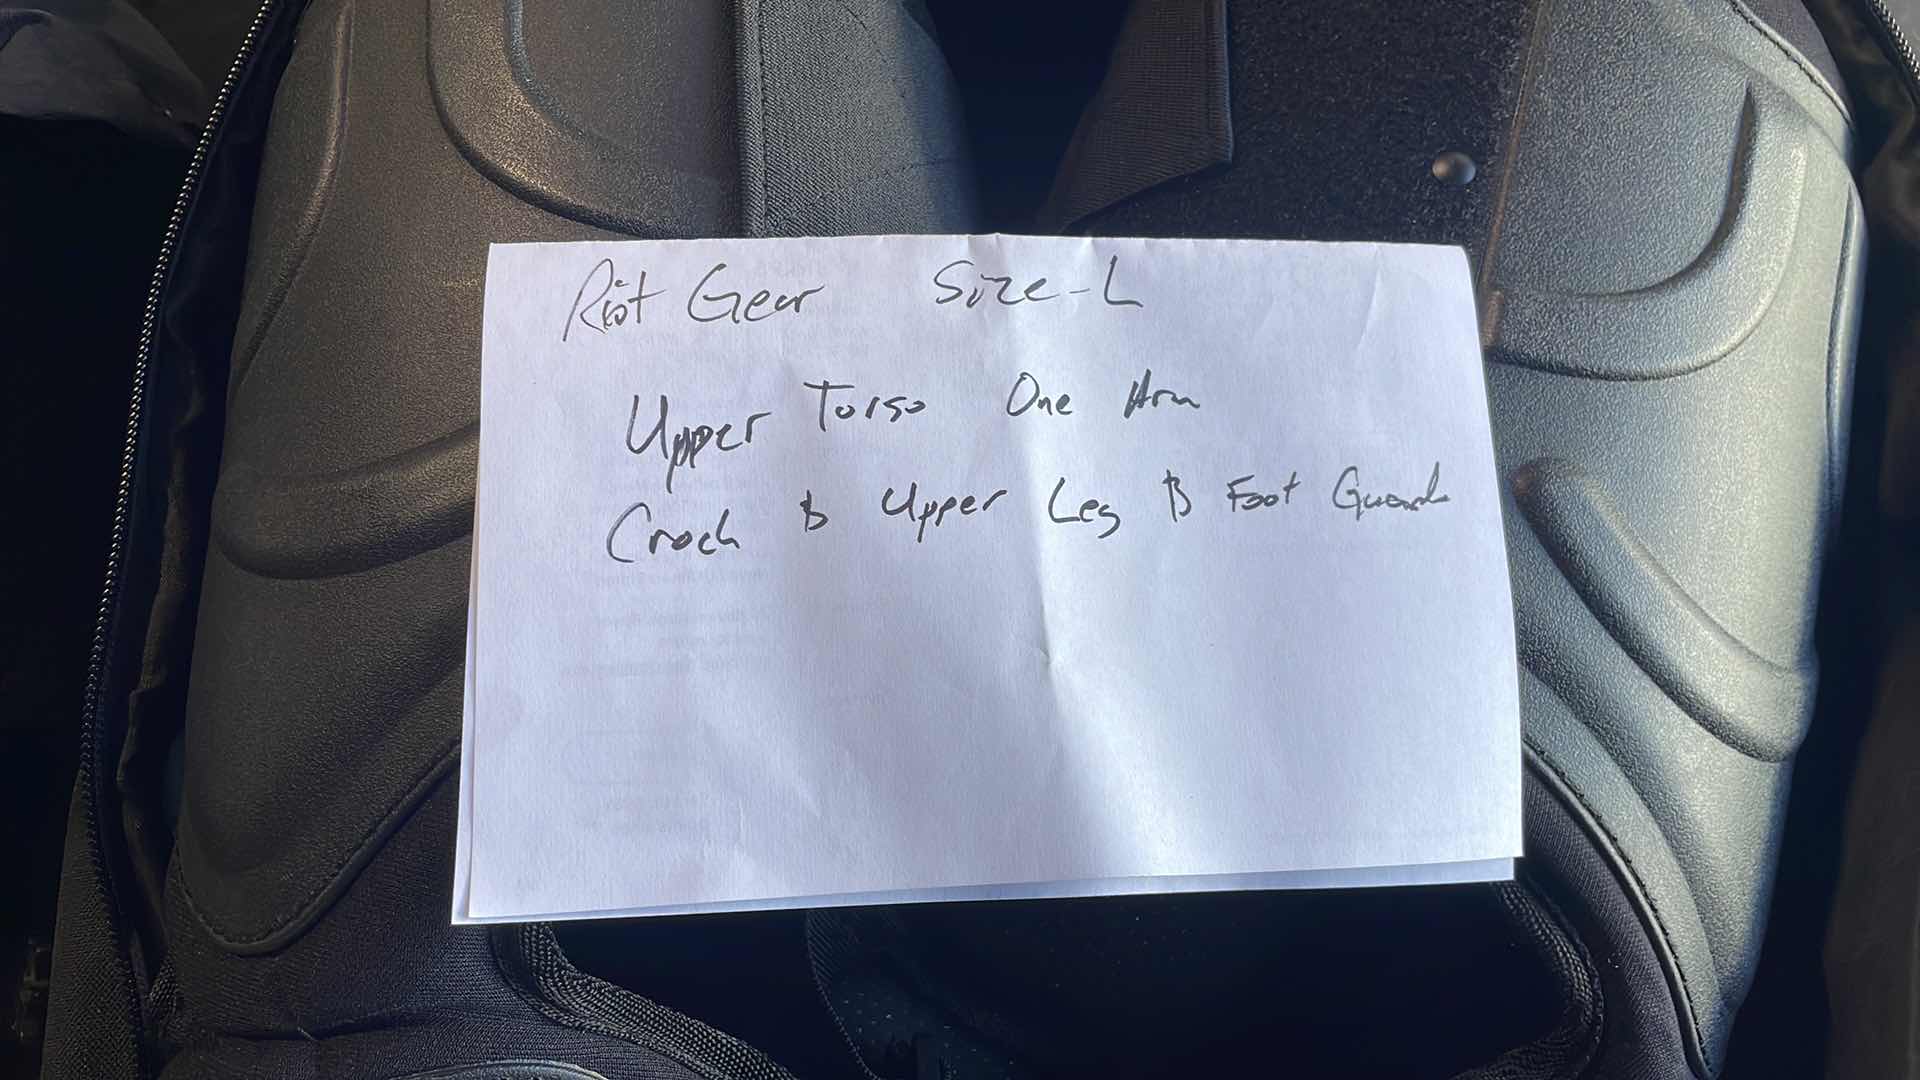 Riot Gear Size-L
Upper Torso One Arm
Croch & Upper Leg & Foot Guard